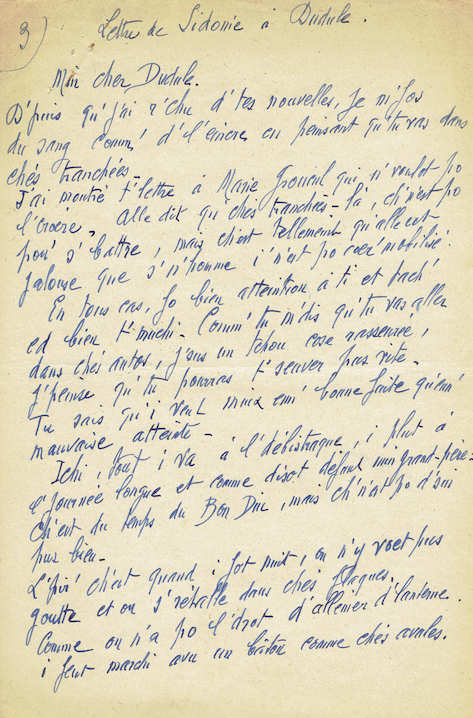 3)
Lettre de Sidonie à Dudule.
Min cher Dudule.
D'puis qu'j'ai r'chu d'tes nouvelles, je m'fos
du sang comm' d'l'encre en peinsant qu'tu vas dans
chés tranchées.
J'ai montré t'lettre à Marie qui n'voulot po
l'croère. Alle dit qu'ches tranchées-là, ch'n'est po
pou' s'battre, mais ch'est tellement qu'alle est
jalouse que s'n'homme i n'est po coer mobilisé.
En tous cas, fo bien atteintion à ti et tach'
ed bien t'muchi. Comm' tu m'dis qu'tu vas aller
dans chés autos, j'sus un tchou cose rasseurée,
j'peinse qu'tu pourras t'seuver pus vite.
Tu sais qu'i veut miux enn' bonne fuite qu'enn'
mauvaise atteinte.
Ichi, tout i va à l'débistraque, i plut à
l'journée longue et comme disot défunt mun grand-père:
Ch'est du temps du Bon Diu, mais ch'n'est po d'sin
pus bien.
L'pir' ch'est quand i fot nuit, on n'y voet pus
goutte et on s'rétalle dans chés flaques.
Comme on n'a po l'drot d'allemer d'lanterne
i feut marchi avu un bâton comme chés avules.